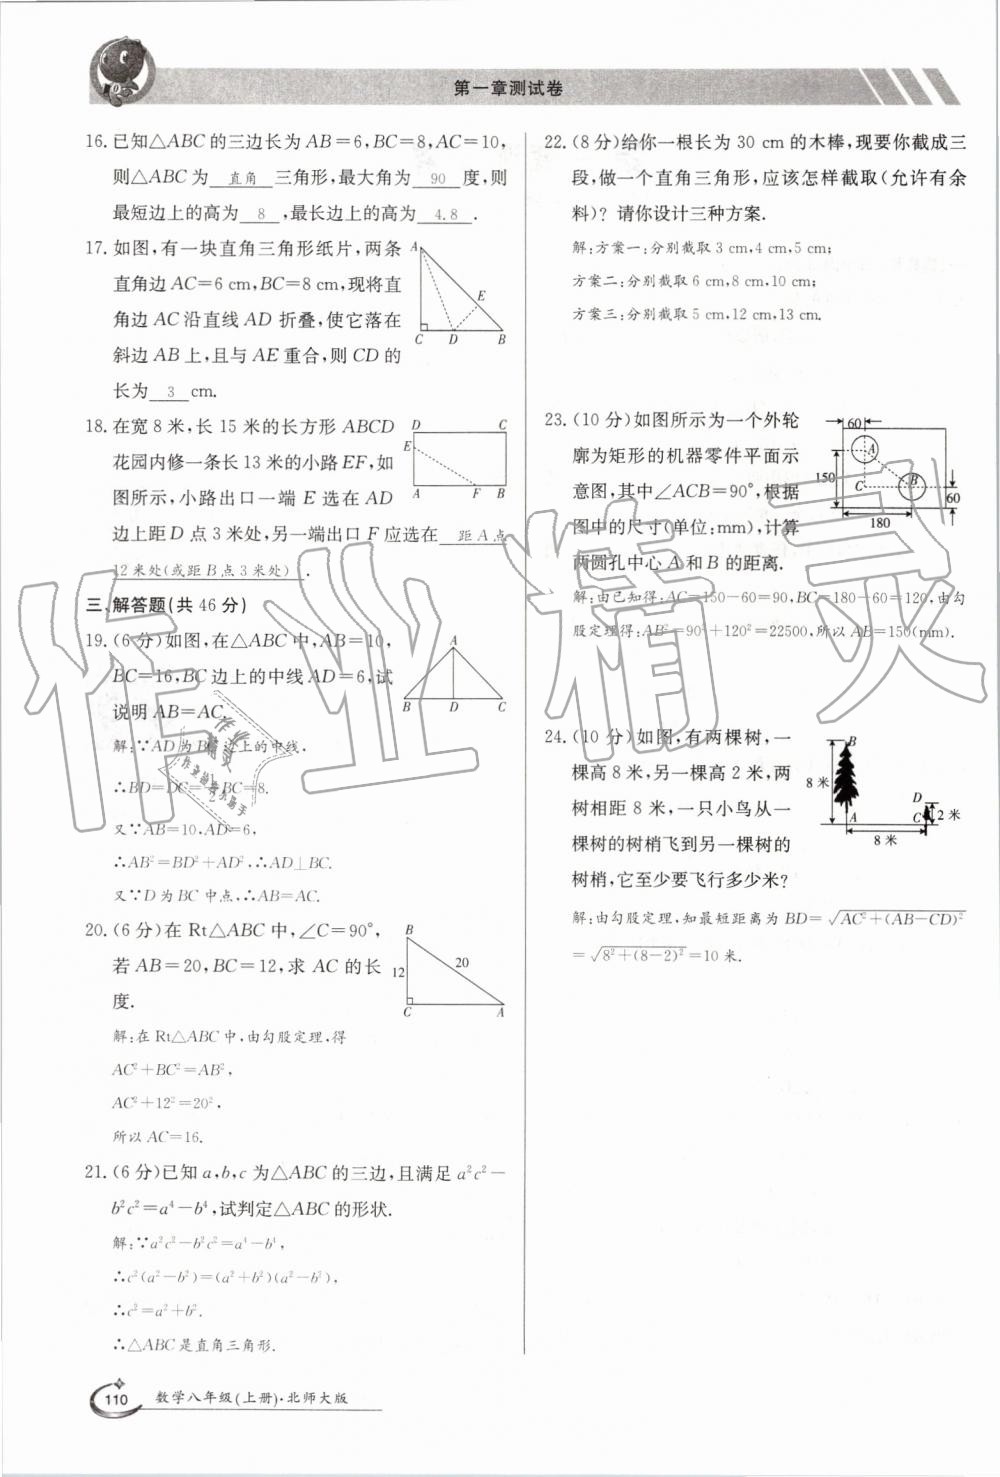 第一章测试卷
16.已知△ABC的三边长为AB=6,BC=8,AC=10,
则△ABC为 直角 三角形,最大角为 90 度,则
最短边上的高为 8 ,最长边上的高为 4.8 .
17.如图,有一块直角三角形纸片,两条
直角边AC=6 cm,BC=8 cm,现将直
角边AC沿直线AD折叠,使它落在
斜边AB上,且与AE重合,则CD的
长为 3 cm.
A
E
C D B
18.在宽8米,长15米的长方形ABCD
花园内修一条长13米的小路EF,如
图所示,小路出口一端E选在AD
边上距D点3米处,另一端出口F应选在 距A点
12米处(或距B点3米处) .
D C
E
A F B
三、解答题(共46分)
19.(6分)如图,在△ABC中,AB=10,
BC=16,BC边上的中线AD=6,试
说明AB=AC.
A
B D C
解:∵AD为BC边上的中线.
∴BD=DC=1/2BC=8.
又∵AB=10,AD=6,
∴AB²=BD²+AD²,∴AD⊥BC.
又∵D为BC中点,∴AB=AC.
20.(6分)在Rt△ABC中,∠C=90°,
若AB=20,BC=12,求AC的长
度.
B
12 20
C A
解:在Rt△ABC中,由勾股定理,得
AC²+BC²=AB²,
AC²+12²=20²,
所以AC=16.
21.(6分)已知a,b,c为△ABC的三边,且满足a²c²−
b²c²=a⁴−b⁴,试判定△ABC的形状.
解:∵a²c²−b²c²=a⁴−b⁴,
∴c²(a²−b²)=(a²+b²)(a²−b²),
∴c²=a²+b².
∴△ABC是直角三角形.
22.(8分)给你一根长为30 cm的木棒,现要你截成三
段,做一个直角三角形,应该怎样截取(允许有余
料)?请你设计三种方案.
解:方案一:分别截取3 cm,4 cm,5 cm;
方案二:分别截取6 cm,8 cm,10 cm;
方案三:分别截取5 cm,12 cm,13 cm.
23.(10分)如图所示为一个外轮
廓为矩形的机器零件平面示
意图,其中∠ACB=90°,根据
图中的尺寸(单位:mm),计算
两圆孔中心A和B的距离.
60
A
150 C B
60
180
解:由已知得:AC=150−60=90,BC=180−60=120,由勾
股定理得:AB²=90²+120²=22500,所以AB=150(mm).
24.(10分)如图,有两棵树,一
棵高8米,另一棵高2米,两
树相距8米,一只小鸟从一
棵树的树梢飞到另一棵树的
树梢,它至少要飞行多少米?
B
8米 D
A C 2米
8米
解:由勾股定理,知最短距离为BD=√AC²+(AB−CD)²
=√8²+(8−2)²=10米.
作业精灵
作业
精灵
作业检查小助手
110 数学八年级(上册)·北师大版